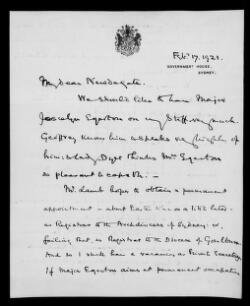 Feb. 17. 1923.
GOVERNMENT HOUSE,
SYDNEY.
My dear Newdegate.
We should like to have Major
Egerton on my Staff very much.
Geoffrey knows him & speaks v. highly of
him, & Lady thinks Mrs Egerton
is pleasant & capable.
Mr. Lamb hopes to obtain a permanent
appointment - about Easter time or a little later -
as Registrar to the Archdiocese of Sydney: or,
failing that, as Registrar to the Diocese of Goulburn.
And so I shall have a vacancy, as Private Secretary.
If Major Egerton aims at permanent occupation